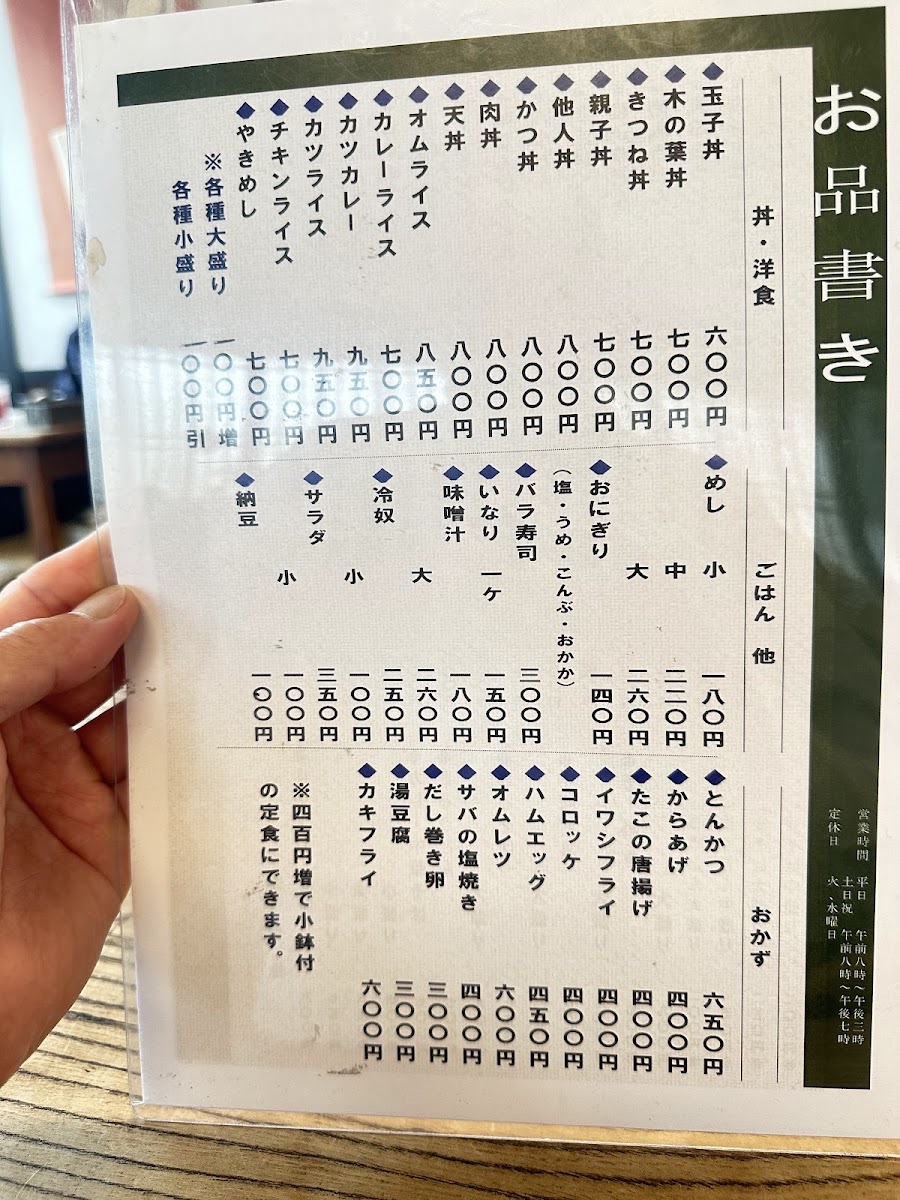 お品書き
営業時間 平日 午前八時～午後三時
土日祝 午前八時～午後七時
定休日 火、水曜日
丼・洋食
◆玉子丼 六〇〇円
◆木の葉丼 七〇〇円
◆きつね丼 七〇〇円
◆親子丼 七〇〇円
◆他人丼 八〇〇円
◆かつ丼 八〇〇円
◆肉丼 八〇〇円
◆天丼 八〇〇円
◆オムライス 八五〇円
◆カレーライス 七〇〇円
◆カツカレー 九五〇円
◆カツライス 九五〇円
◆チキンライス 七〇〇円
◆やきめし 七〇〇円
※各種大盛り 一〇〇円増
各種小盛り 一〇〇円引
ごはん 他
◆めし 小 一八〇円
中 二二〇円
大 二六〇円
◆おにぎり 一四〇円
（塩・うめ・こんぶ・おかか）
◆バラ寿司 三〇〇円
◆いなり 一ケ 一五〇円
◆味噌汁 一八〇円
大 二六〇円
◆冷奴 二五〇円
小 一〇〇円
◆サラダ 三五〇円
小 一〇〇円
◆納豆 一〇〇円
おかず
◆とんかつ 六五〇円
◆からあげ 四〇〇円
◆たこの唐揚げ 四〇〇円
◆イワシフライ 四〇〇円
◆コロッケ 四〇〇円
◆ハムエッグ 四五〇円
◆オムレツ 六〇〇円
◆サバの塩焼き 四〇〇円
◆だし巻き卵 三〇〇円
◆湯豆腐 三〇〇円
◆カキフライ 六〇〇円
※四百円増で小鉢付
の定食にできます。